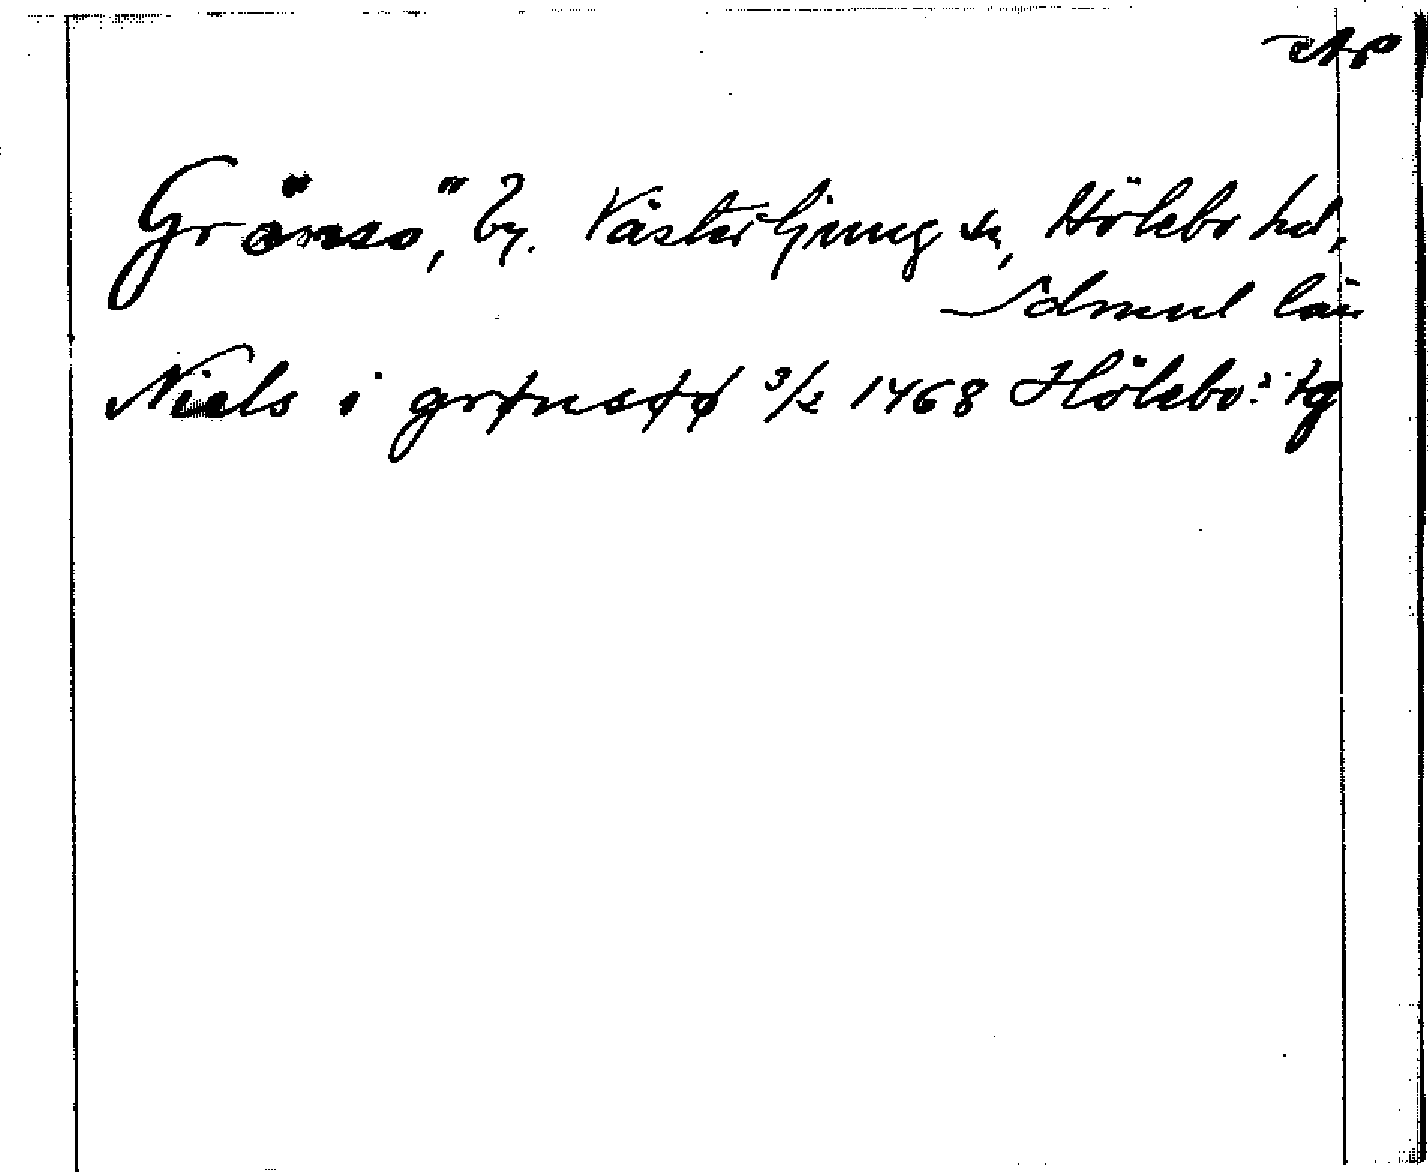 Grönsö, by. Västerljung sn, Hölebo hd,
Sdmnl län
Niels i grønsøø 3/2 1468 Hölebo: tg